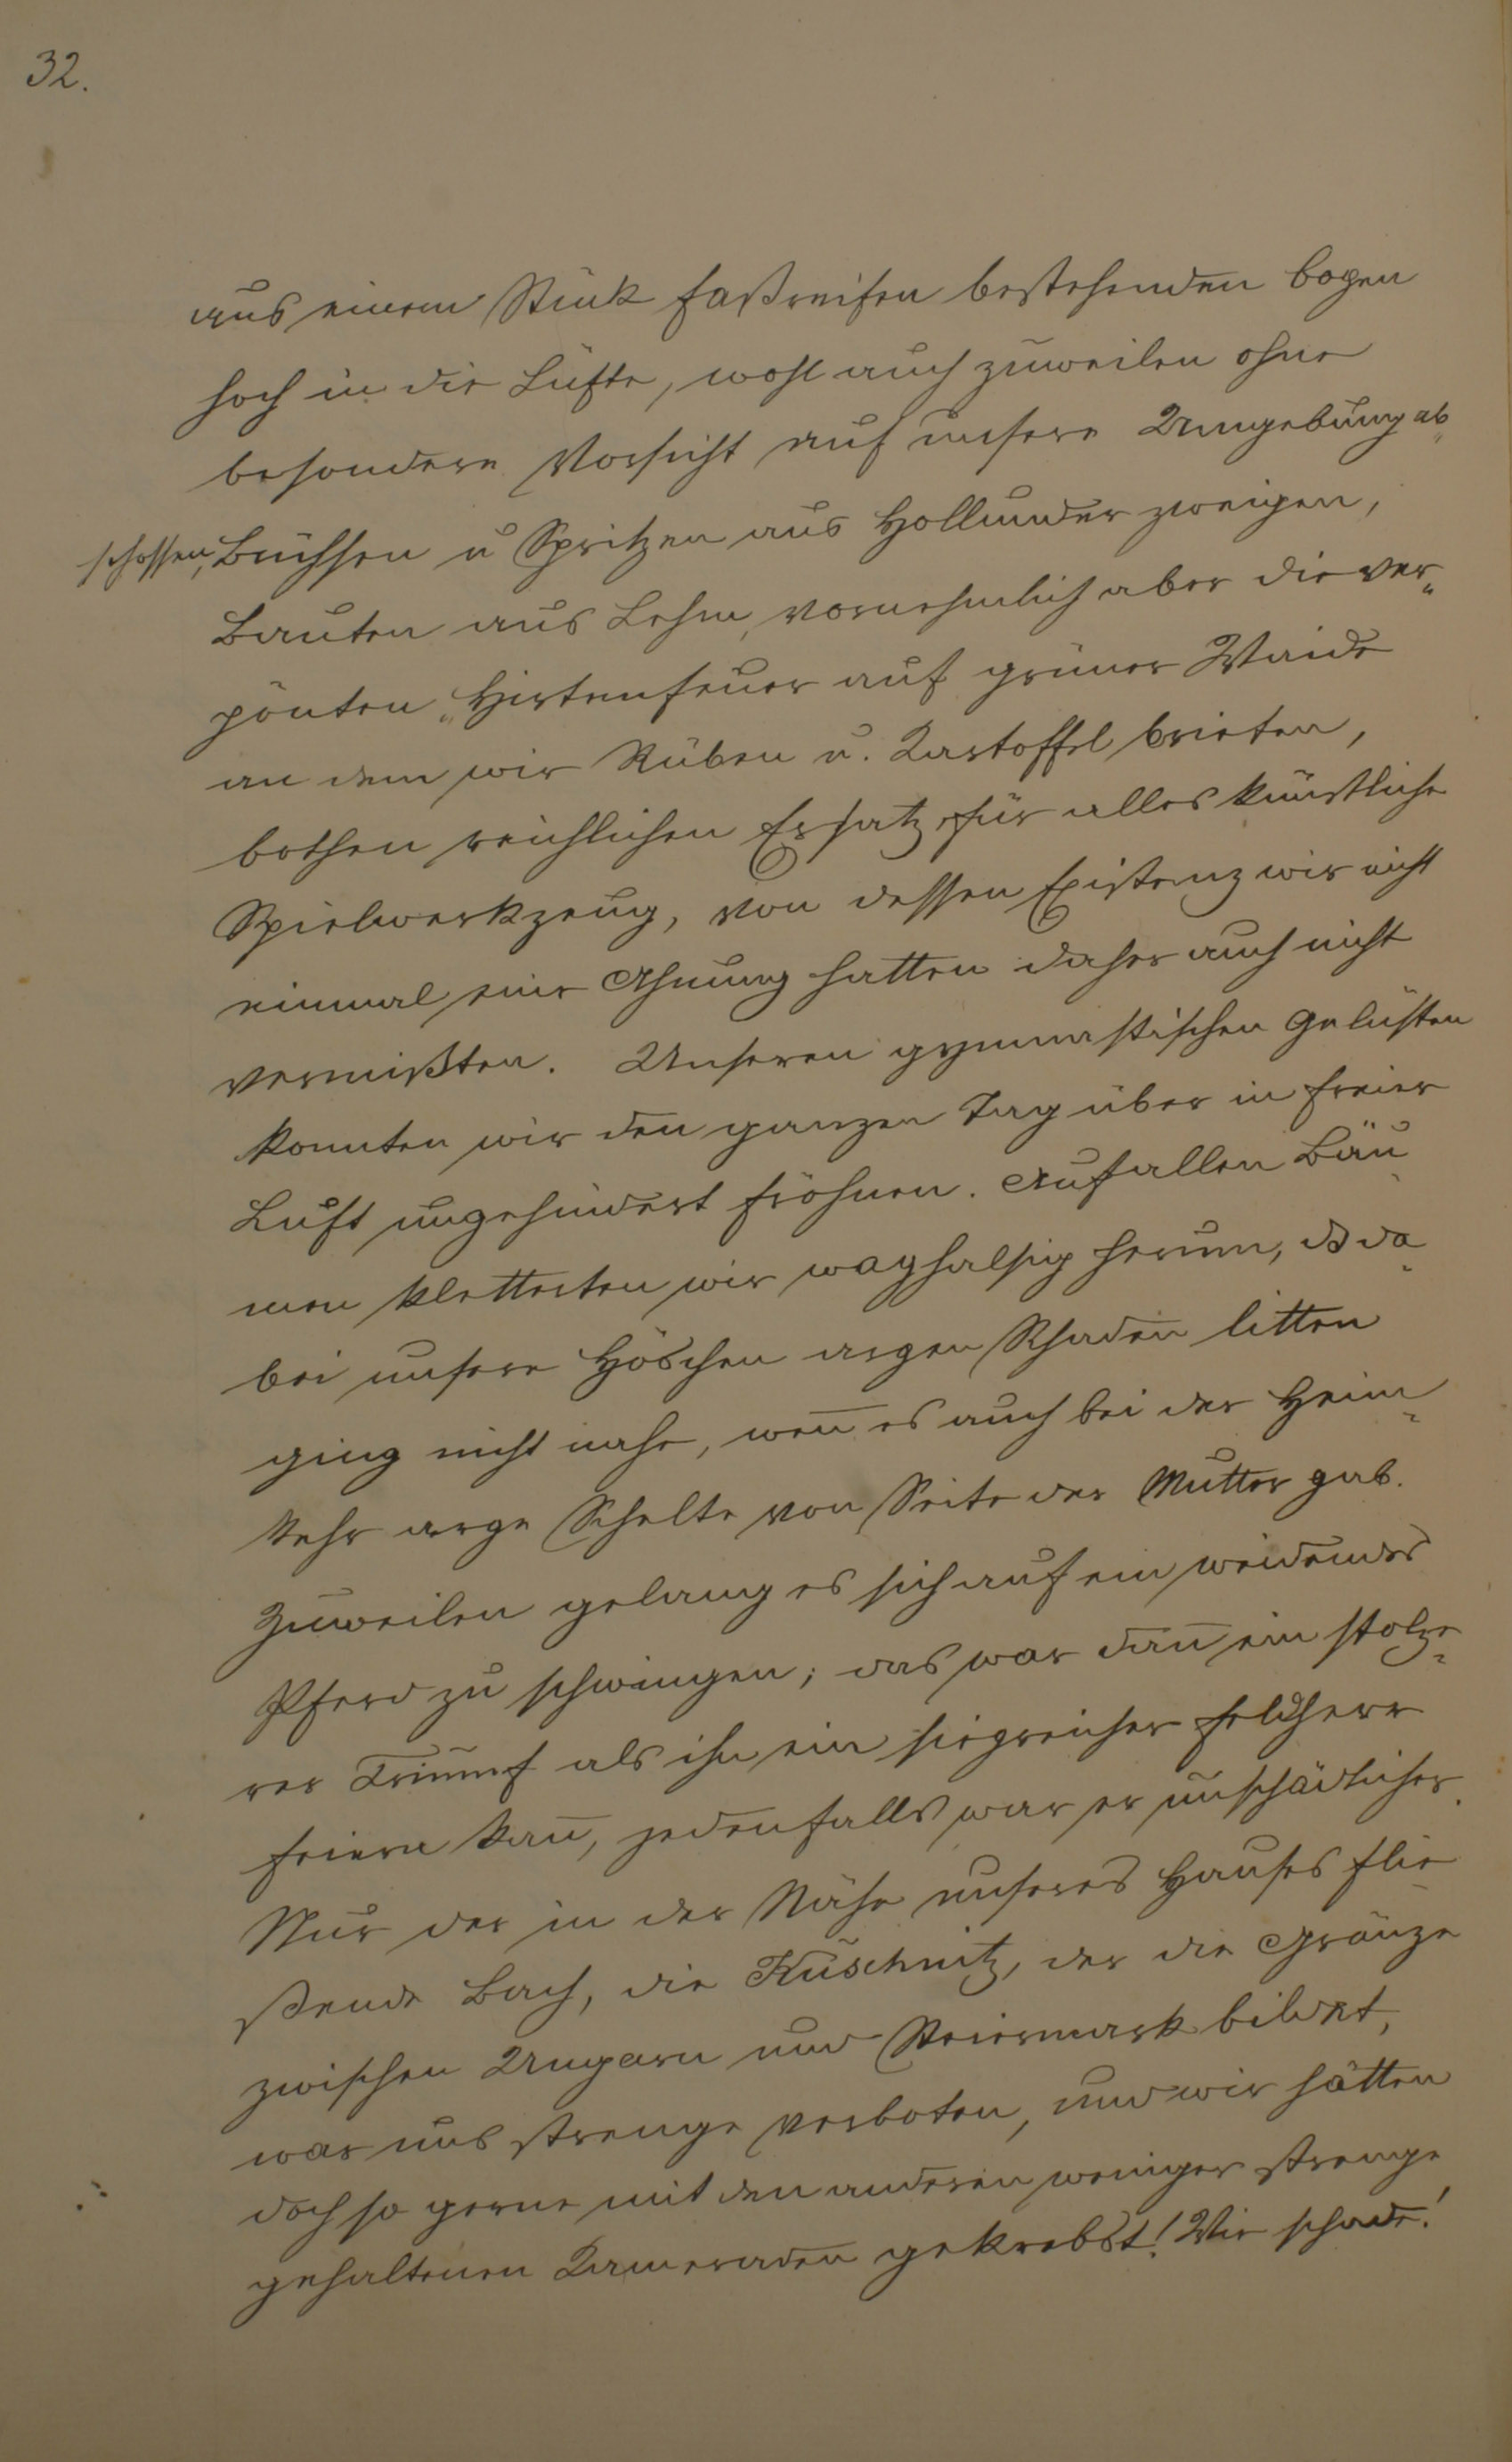 32.
aus einem Stück Faßreifen bestehenden Bogen
hoch in die Lüfte, wohl auch zuweilen ohne
besondere Vorsicht auf unsere Umgebung ab„
schossen, Büchsen u Spritzen aus Hollunder zweigen,
Bauten aus Lehm, vornehmlich aber die ver„
pönten „Hirtenfeuer auf grüner Waide
an dem wir Rüben u. Kartoffel brieten,
bothen reichlichen Ersatz für alles künstliche
Spielwerkzeug, von dessen Existenz wir nicht
einmal eine Ahnung hatten daher auch nicht
vermißten. Unseren gymnastischen Gelüsten
konnten wir den ganzen Tag über in freier
Luft ungehindert fröhnen. Auf allen Bäu-
men kletterten wir waghalsig herum, ds da-
bei unsere Höschen argen Schaden litten
ging nicht nahe, weñ es auch bei der Heim-
kehr arge Schelte von Seite der Mutter gab.
Zuweilen gelang es sich auf ein weidendes
Pferd zu schwingen; das war dañ ein stolze-
rer Triumf als ihn ein siegreicher Feldherr
feiern kañ, jedenfalls war er unschädlicher.
Nur der in der Nähe unseres Hauses flie-
ßende Bach, die Kuschnitz, der die Gränze
zwischen Ungarn und Steiermark bildet,
war uns strenge verboten, und wir hätten
doch so gerne mit den anderen weniger strenge
gehaltenen Kameraden gekrebst! Wie schade!